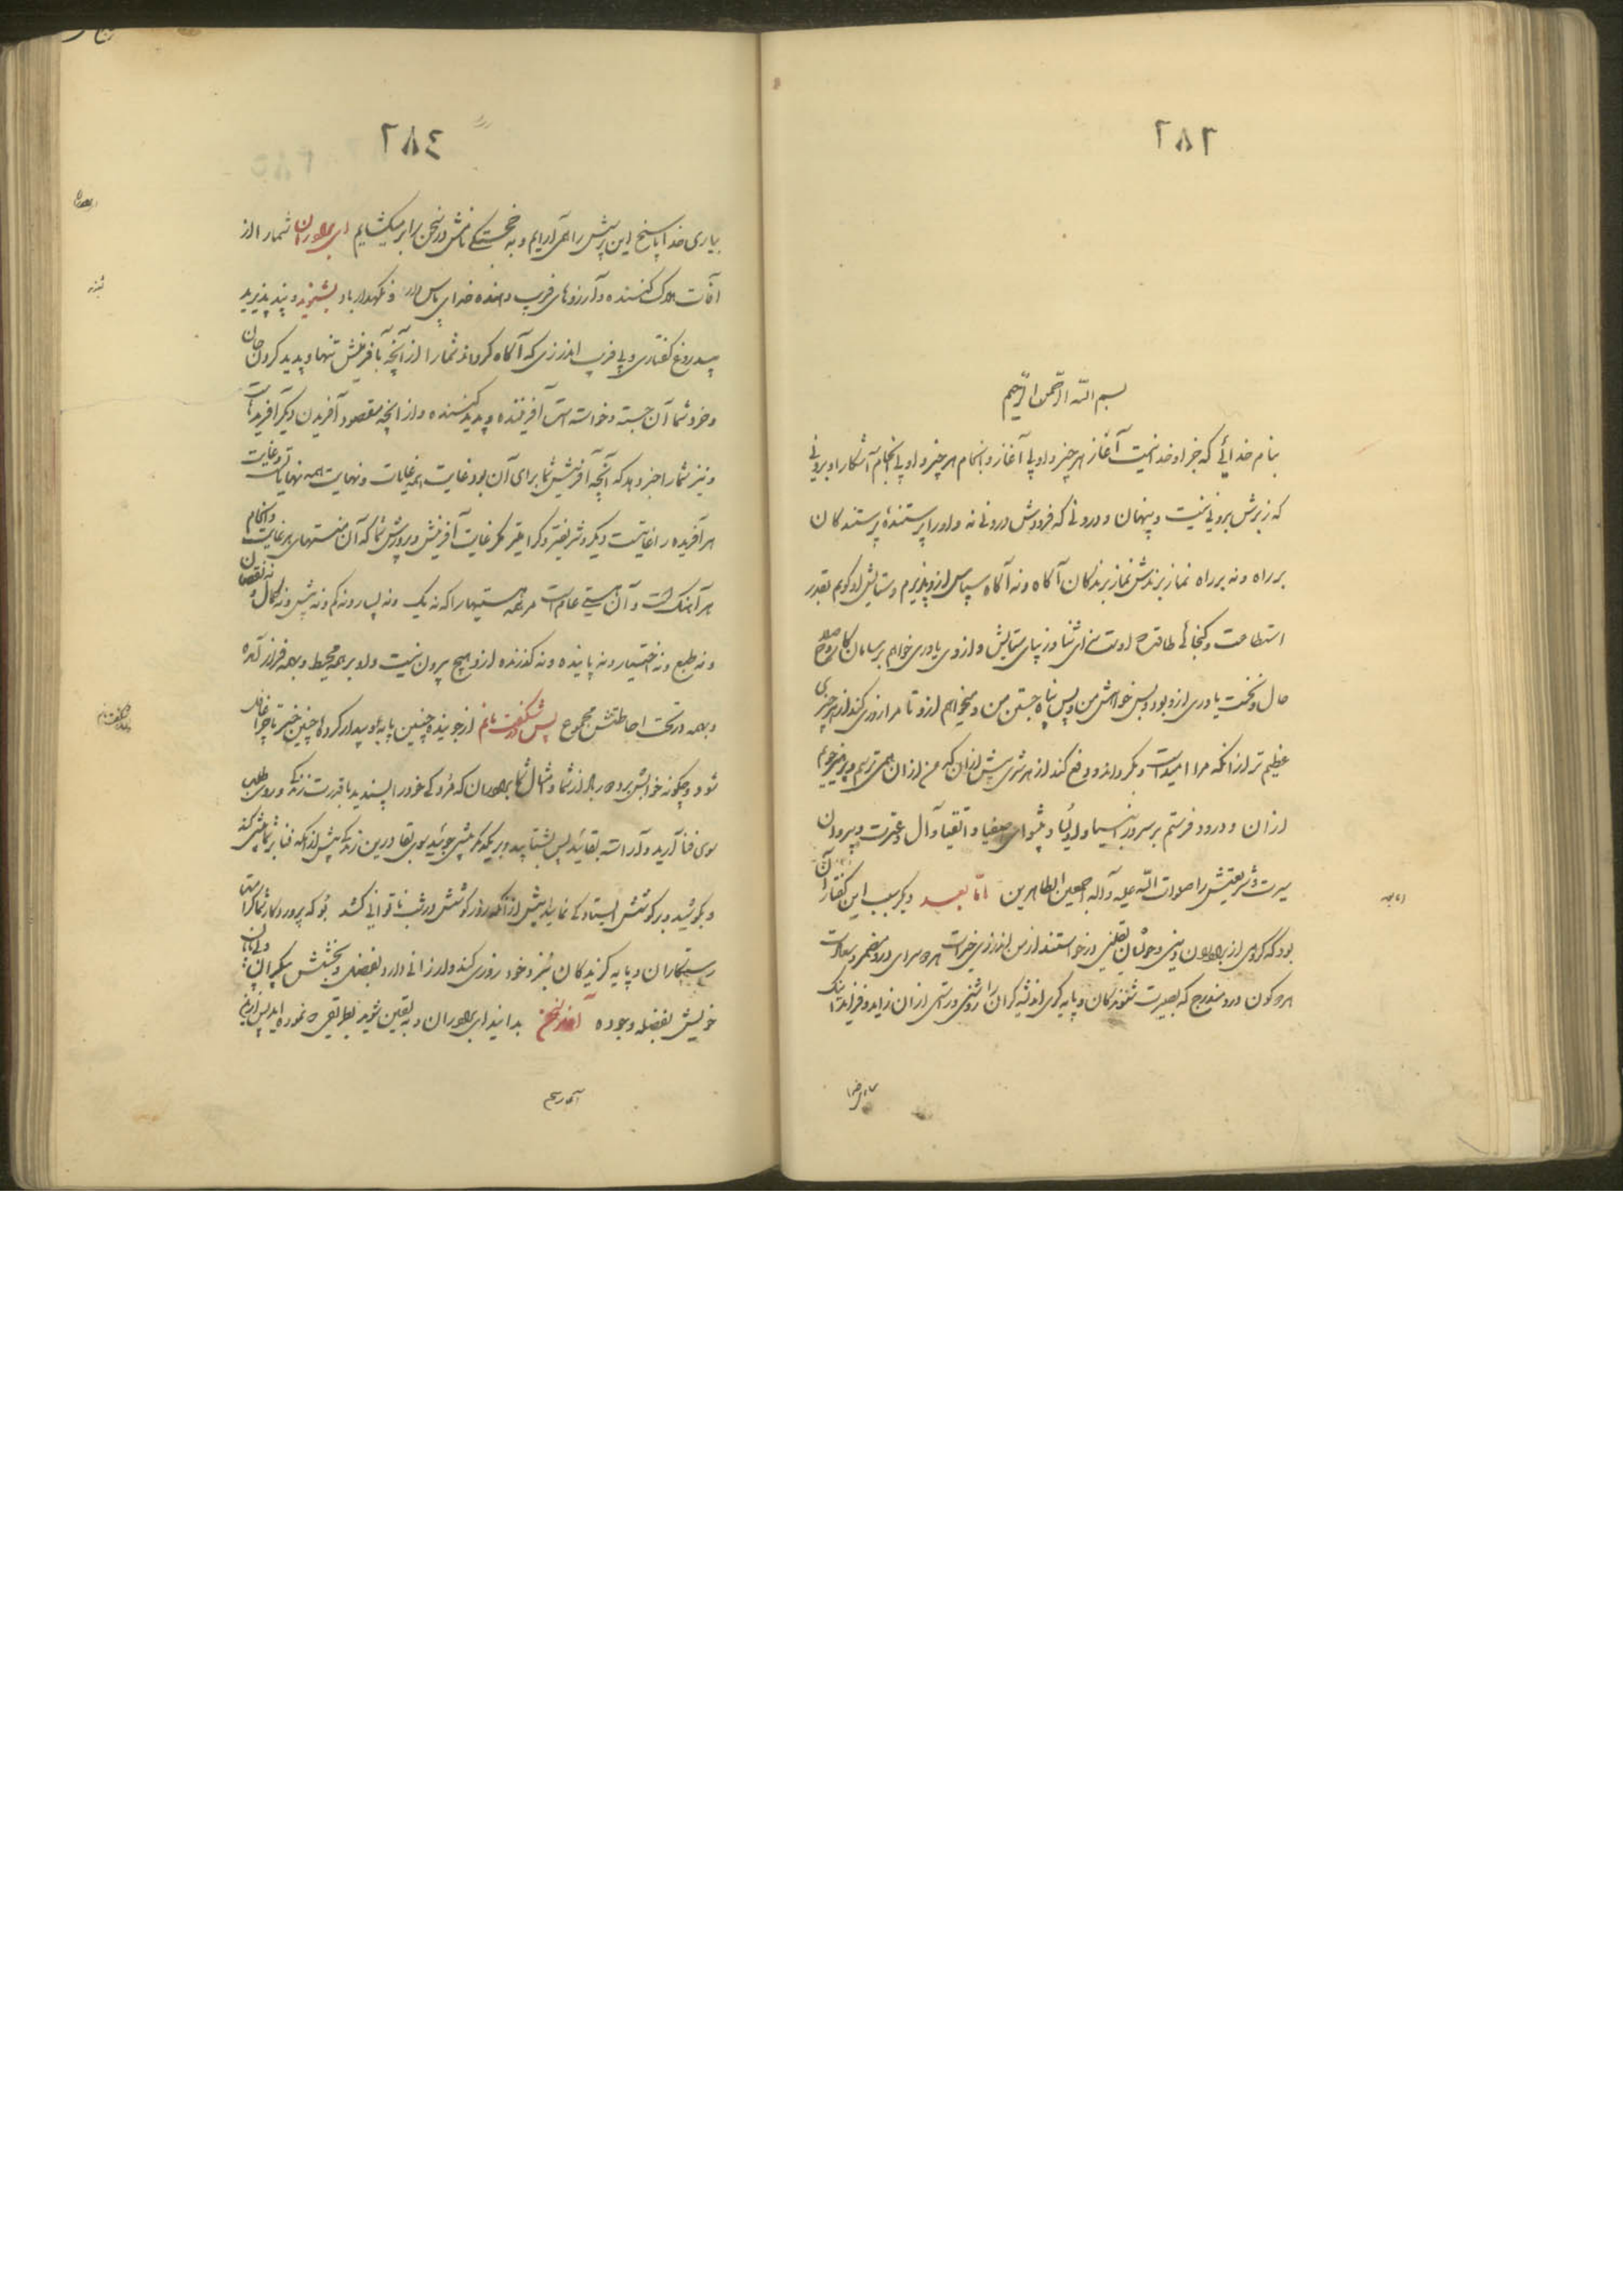 ٢٨٣
بسم الله الرحمن الرحیم
بنام خدائی که جز او خدا نیست آغاز هر چیز و او بی آغاز و انجام هر چیز و او بی انجام آشکارا و برونی
که زبرش برونی نیست و پنهان و درونی که فرودش درونی نه و او را پرستنده پرستندکان
بر راه و نه بر راه نماز برندش نماز برندکان آکاه و نه آکاه سپاس ازو پذیرم و ستایش او کویم بقدر
استطاعت و کنجائی طاقت اوست سزای ثنا و زیبای ستایش و ازوی یاوری خواهم بر سامان کار و صلاح
حال و نخست یاوری ازو بود و بس خواهش من و پس پناه جستن من و میخواهم ازو تا مرا روزی کند از هر چیزی
عظیم تر از انکه مرا امیدست و بکرداند و دفع کند از هر شری بیش از آن که من از ان همی ترسم و پرهیز جویم
از ان و درود فرستم بر سرور انبیا و اولیا و پیشوای اصفیا و اتقیا و آل و عترت و پیروان
سیرت و شریعتش را صلوات الله علیه و آله اجمعین الطاهرین امّا بعد دیکر سبب این کفتار آن
بود که کروهی از برادران دینی و دوستان یقینی درخواستند از من اندرزی خیرات هر دو سرای درو مضمر و سعادت
هر دو کون درو مندرج که بصیرت شنوندکان و پایه کرای اندیشه کران را روشنی و رستی از ان زاید و فزاید اینک
بیاری خدا
اما بعد
٢٨٤
بیاری خدا پاسخ این پرسش را همی آرایم و به خجستکی نامش در سخن را بر میکشایم ای برادران شما را از
آفات هلاک کننده و آرزوهای فریب دهنده خدای پاس دار و نکهدار باد بشنوید و پند پذیرید
بیدروغ کفتاری و بی فریب اندرزی که آکاه کرداند شما را از آنچه بآفرینش تنها و پدید کردن جان
و خرد شما آن جسته و خواسته است آفریننده و پدید کننده و از آنچه مقصود آفریدن دیکر آفریدهاست
و نیز شما را خبر دهد که آنچه آفرینش شما برای آن بود غایت همه غایات و نهایت همه نهایات و غایت
هر آفریده را غایتیست دیکر و شریفتر و کرامیتر مکر غایت آفرینش و پرورش شما که آن منتهای هر غایت و انجام
هر آهنک است و آن هستی عام است مر همه هستیها را که نه یک و نه بسیار و نه کم و نه بیش و نه کمال و نه نقصان
و نه طبع و نه اختیار و نه پاینده و نه کذرنده ازو هیچ بیرون نیست و او بر همه محیط و بهمه فراز آمده
و همه در تحت احاطتش مجموع پس شکفت مانم از جوینده چنین پایه و امیدوار کردهٔ چنین خبر تا چرا غافل
شود و چکونه خوابش برد از شما و امثال شما برادران که مرد کی خود را پسندید با قدرت زندکی و روی طلبی
سوی فنا آرید و آراسته بقائید پس بشتابید و بر یکدیکر پیشی جوئید سوی بقا درین زندکی پیش از انکه فنا بر شما پیشی کند
و بکوشید و بر کوشش ایستادکی نمایید پیش از آنکه روز کوشش در شب ناتوانی کشد بو که پروردکار شما کرامتی
رستکاران و پایه کزیدکان نیز و خود روزی کند و ارزانی دارد بفضل و بخشش بیکران و بی پایان
خویش بفضله و جوده آغاز سخن بدانید ای برادران و به یقین شوید بطریقی که نموده آید پس ازین